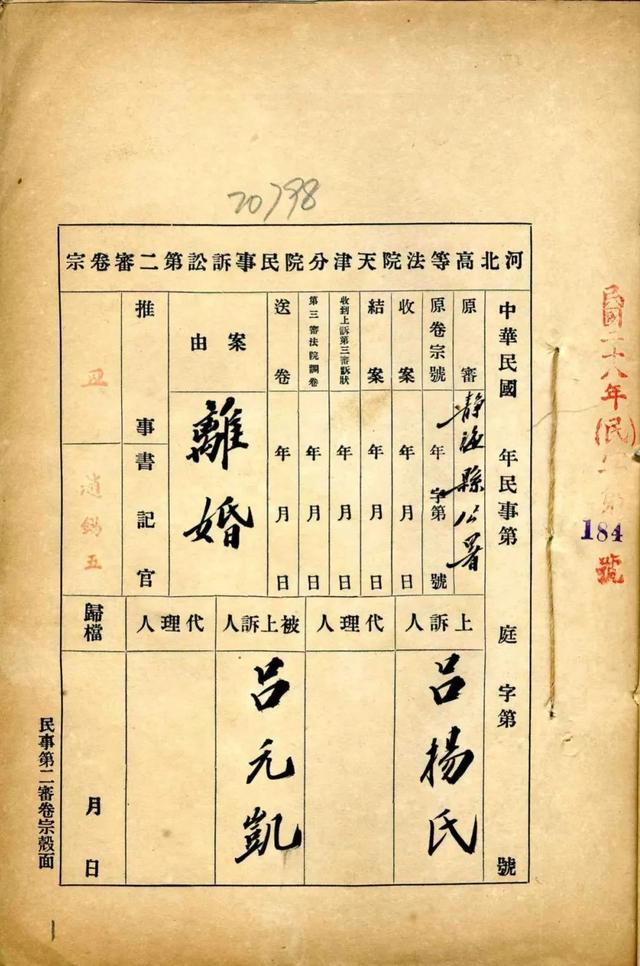 20798
河北高等法院天津分院民事訴訟第二審卷宗
中華民國　年民事第　庭　字第　號
原審　靜海縣公署
原卷宗號　年　字第　號
收案　年　月　日
結案　年　月　日
收到上訴第三審訴狀　年　月　日
第三審法院調卷　年　月　日
送卷　年　月　日
案由　離婚
推事
書記官　趙錫五
上訴人　呂揚氏
代理人
被上訴人　呂元凱
代理人
歸檔　月　日
民國二十八年(民)第184號
民事第二審卷宗殼面